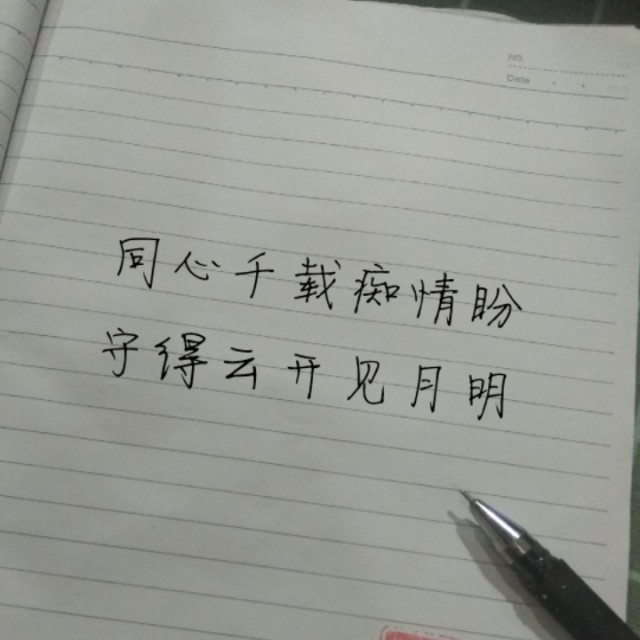 No.
Date
同心千载痴情盼
守得云开见月明